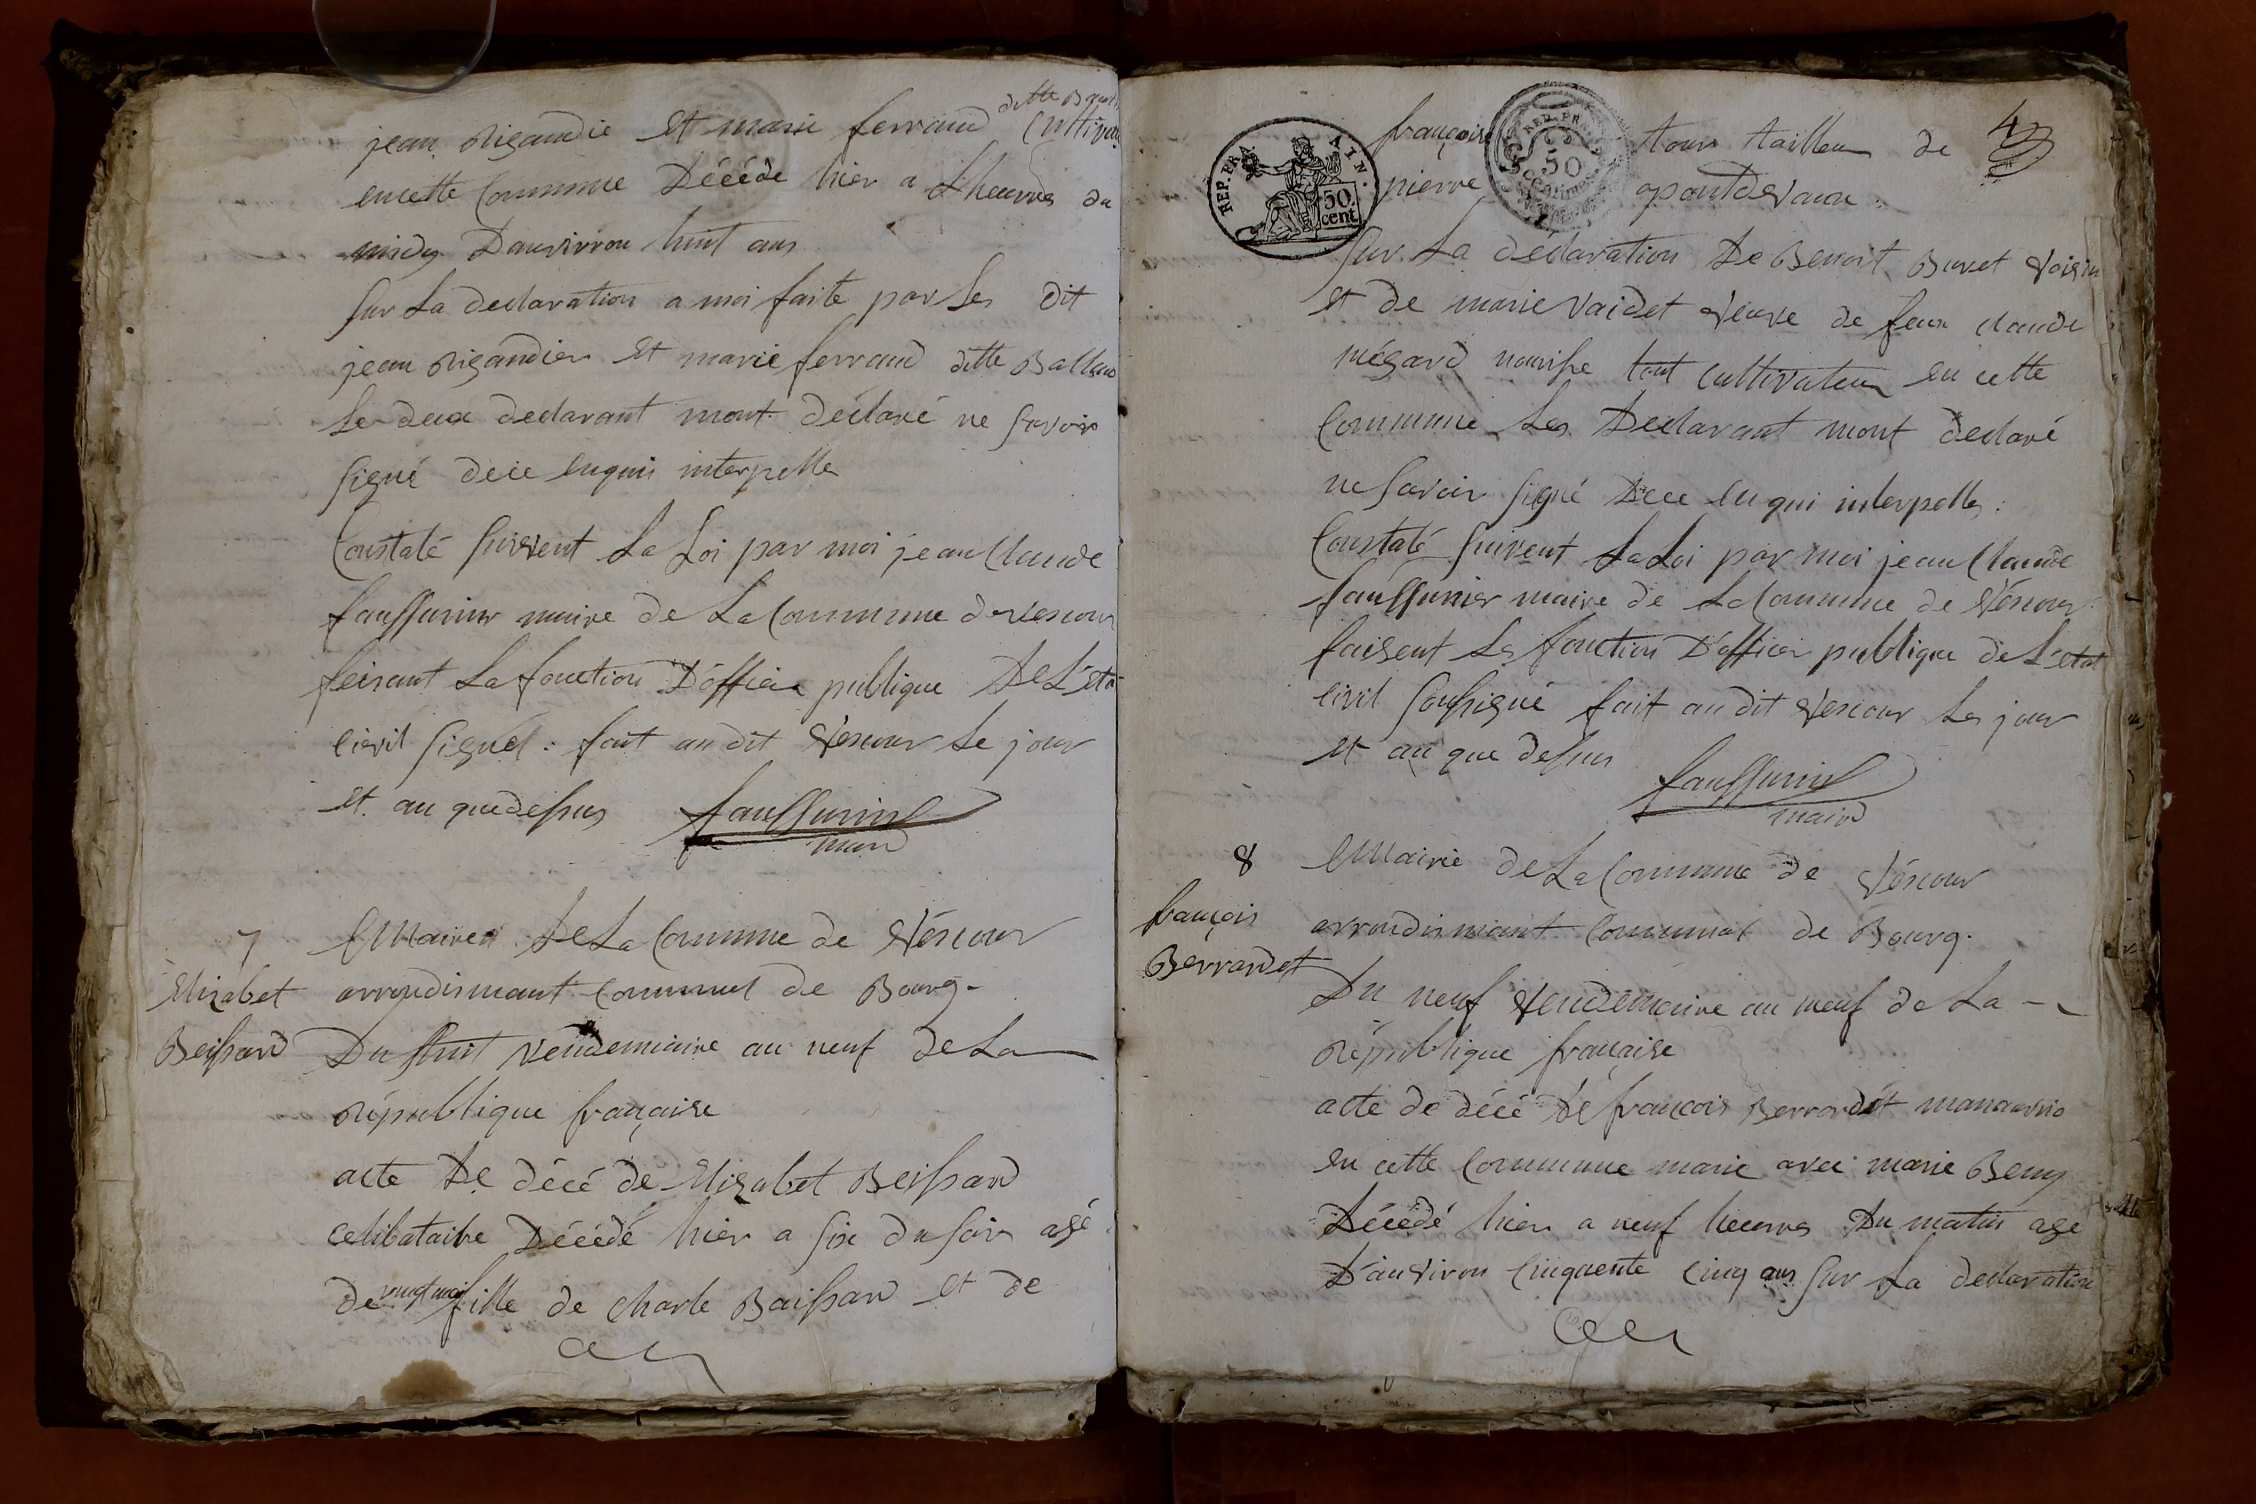 ditte
jean Rigaudie et marie ferraud Cultiva
en cette Commune Décéde hier a heurres du
midy D'anvirrou huit ans
sur La declaration a moi faite par Les dit
jean Rigaudier et marie ferraud ditte Balland
Le deux declarant mont déclaré ne savoir
signé de ce enquis interpelle
Constaté suivent La Loi par moi jean Claude
faussurier maire de La Commune de vescour
feisant La fonction D'officie publique De L'eta
cievil signé : fait au dit Vescour Le jour
et au que dessus faussurier
maire
7 Mairie De La Commune de Véscour
Elizabet arrondismant Communel de Bourg.
Beissard Du huit vendemiaire an neuf de La
République française
acte De décé de Elizabet Beissard
celibataire Décédé hier a six du soir agé
de fille de Charle Baissard et de
4
REP. FRA. AIN.
50 cent.
REP. FRA.
50 Centimes
françoise tour tailleur de
pierre pontdevaux
sur La declaration De Benoit Buret voisin
et de marie vaidet veuve de feux claude
mégard nourisse tout cultivateur en cette
Commune Les Declarant mont declaré
ne savoir signé Dece enqui interpelle :
Constaté suivent La Loi par moi jean Claude
faussurier maire de La Commune de Véscour
faisent Les fonction D'officier publique de L'etat
civil soussigné fait au dit Vescour Les jour
et an que dessus
faussurier
maire
8 Mairie de La Commune de Véscour
françois arrondismant Communal de Bourg.
Berrardet
Du neuf Vendémiaire an neuf de La
République française
acte de décé de françois Berrardet manauvrie
en cette Commune marie avec marie Beny
Décédé hier a neuf heurres Du matin age
D'anviron Cinquente Cinq ans sur La declaration